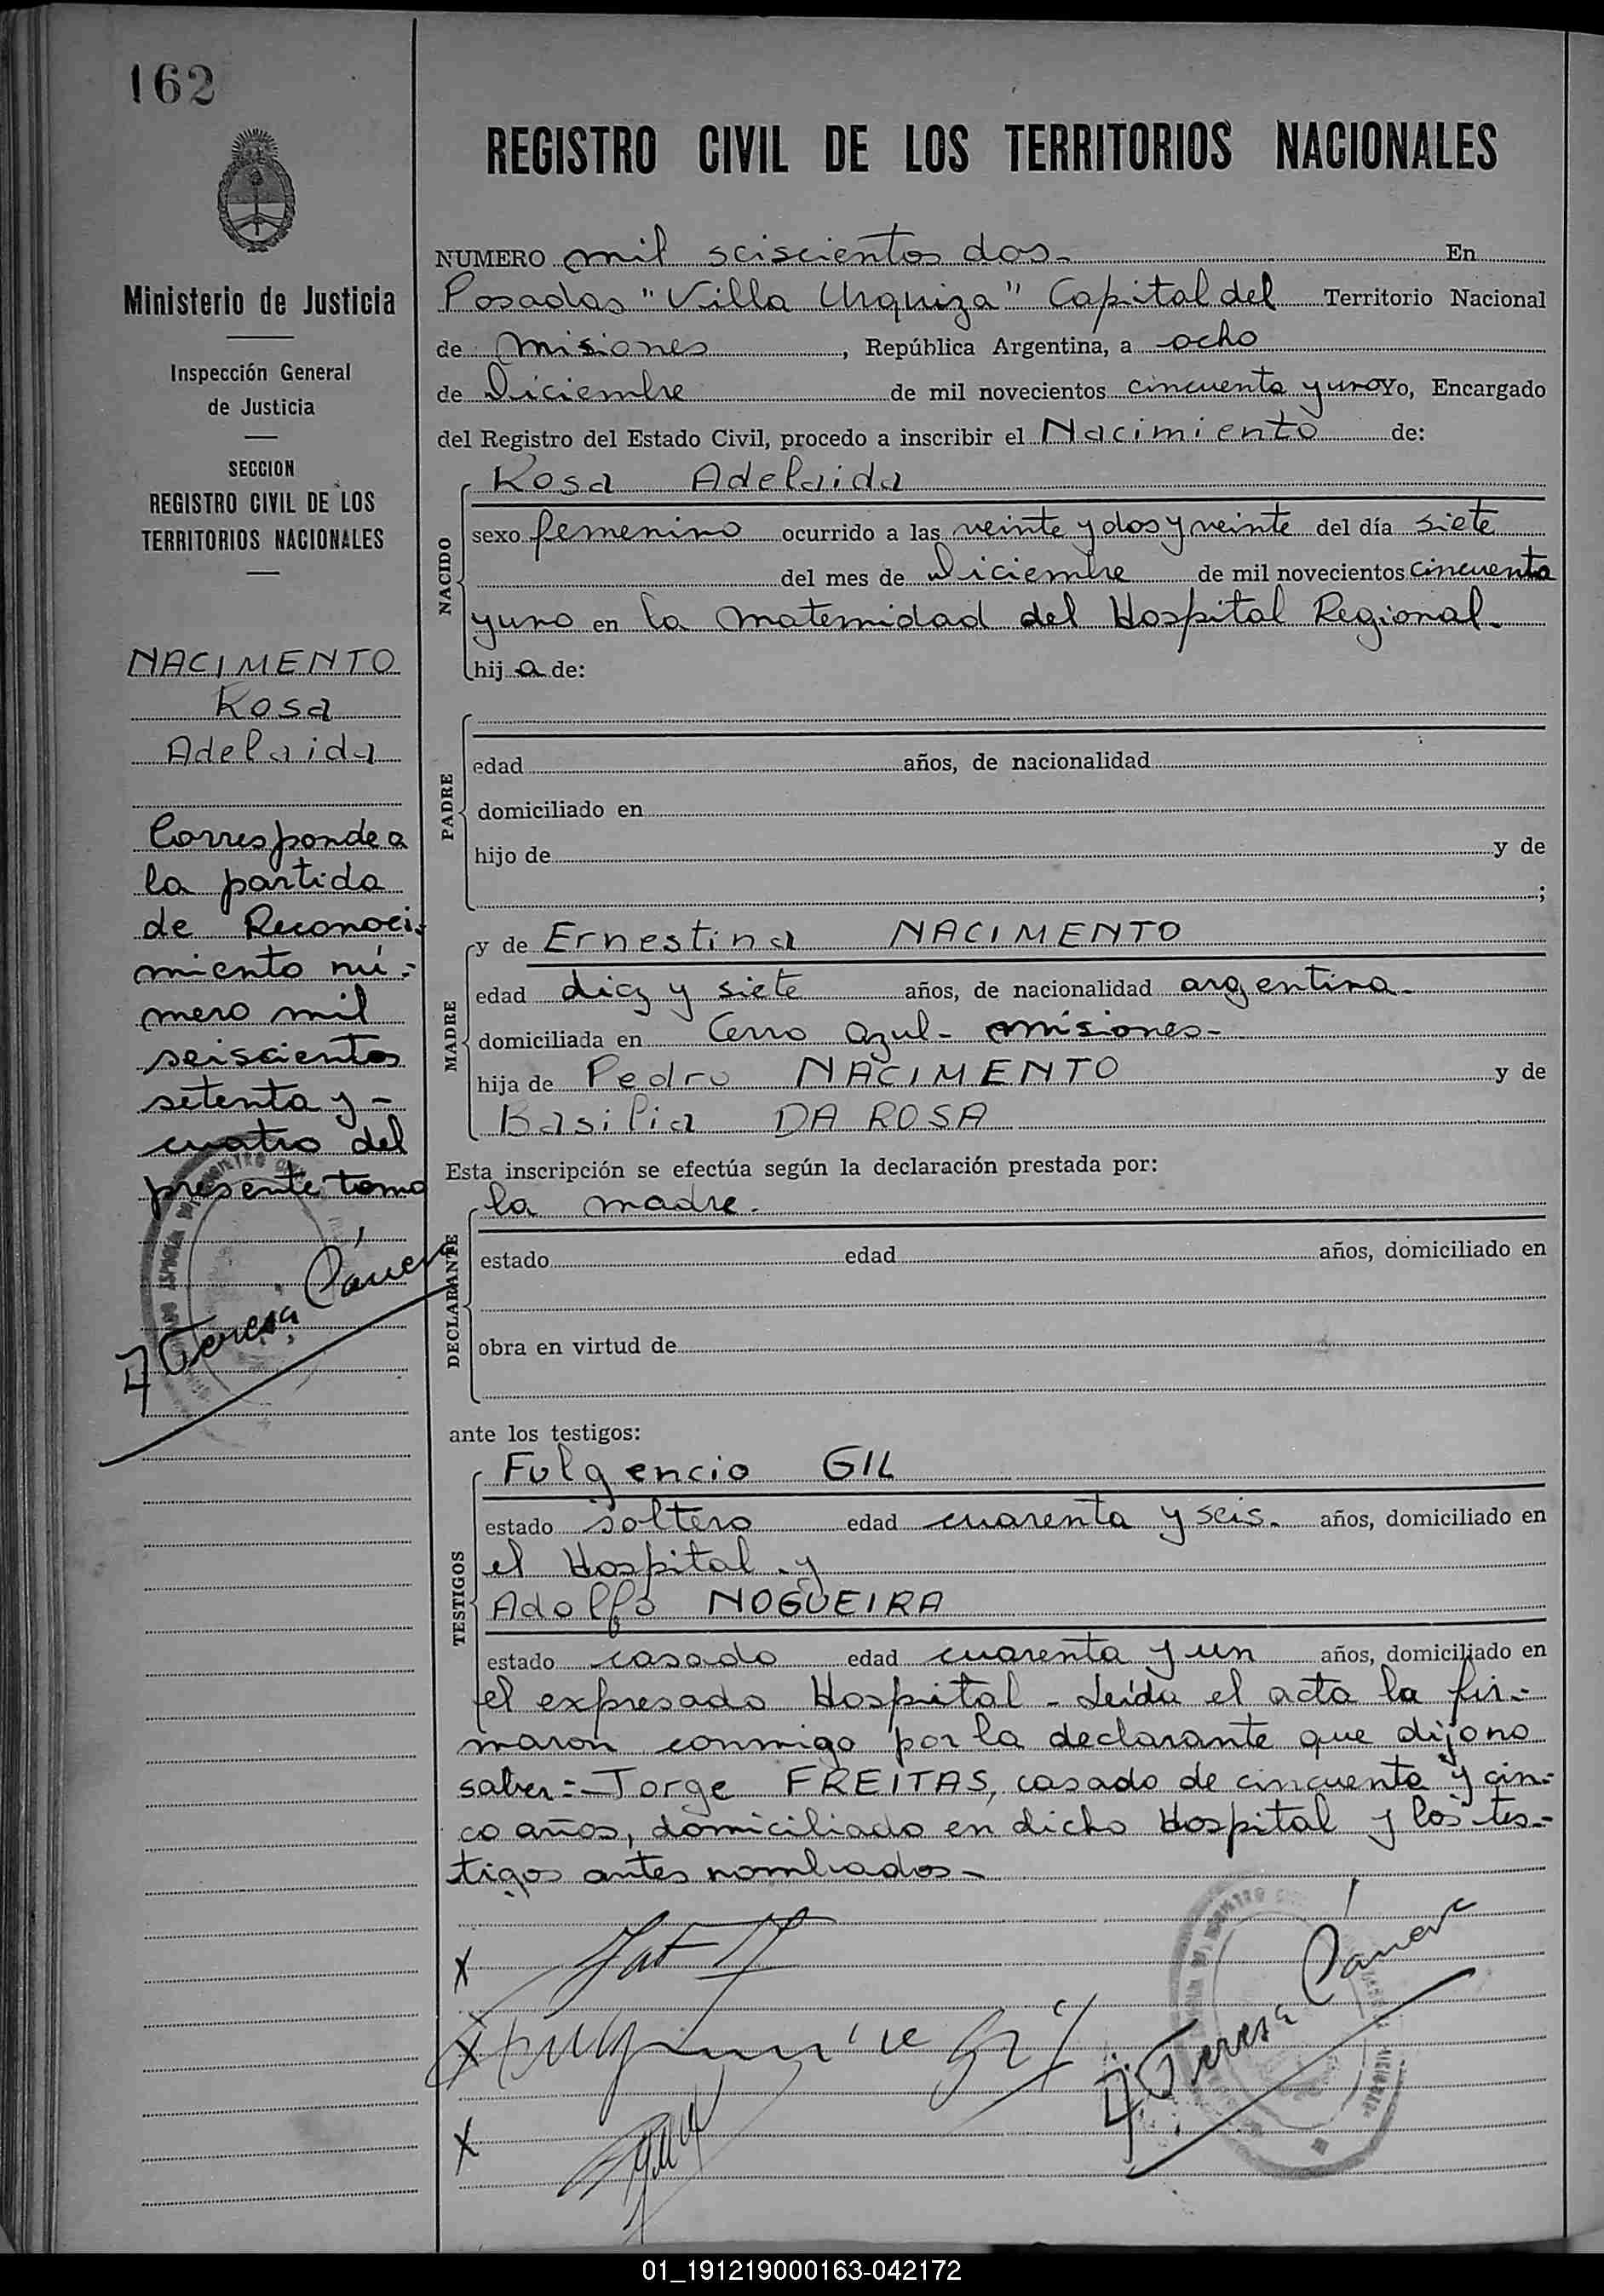 162
Ministerio de Justicia
Inspección General
de Justicia
SECCION
REGISTRO CIVIL DE LOS
TERRITORIOS NACIONALES
NACIMENTO
Rosa
Adelaida
Corresponde a
la partida
de Reconoci-
miento nú-
mero mil
seiscientos
setenta y -
cuatro del
presente tomo
REGISTRO CIVIL DE LOS TERRITORIOS NACIONALES
NUMERO mil seiscientos dos- En
Posadas "Villa Urquiza" Capital del Territorio Nacional
de Misiones, República Argentina, a ocho
de Diciembre de mil novecientos cincuenta y uno Yo, Encargado
del Registro del Estado Civil, procedo a inscribir el Nacimiento de:
Rosa Adelaida
NACIDO
sexo femenino ocurrido a las veinte y dos y veinte del día siete
del mes de Diciembre de mil novecientos cincuenta
y uno en la maternidad del Hospital Regional.
hij a de:
PADRE
edad años, de nacionalidad
domiciliado en
hijo de y de
;
MADRE
y de Ernestina NACIMENTO
edad diez y siete años, de nacionalidad argentina-
domiciliada en Cerro Azul- Misiones-
hija de Pedro NACIMENTO y de
Basilia DA ROSA
Esta inscripción se efectúa según la declaración prestada por:
la madre.
DECLARANTE
estado edad años, domiciliado en
obra en virtud de
ante los testigos:
TESTIGOS
Fulgencio GIL
estado soltero edad cuarenta y seis. años, domiciliado en
el Hospital. y
Adolfo NOGUEIRA
estado casado edad cuarenta y un años, domiciliado en
el expresado Hospital - Leída el acta la fir-
maron conmigo por la declarante que dijo no
saber=-Jorge FREITAS, casado de cincuenta y cin-
co años, domiciliado en dicho Hospital y los tes-
tigos antes nombrados-
X
X
X
01_191219000163-042172